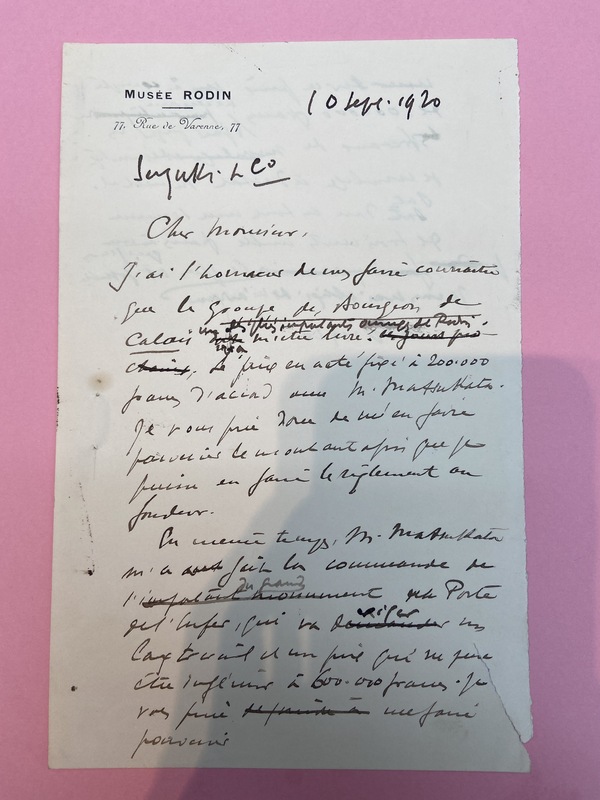 MUSÉE RODIN
77, Rue de Varenne, 77
10 Sept. 1920
Suzuki & Co
Cher Monsieur,
J'ai l'honneur de vous faire connaître
que le Groupe des Bourgeois de
une des plus importants ouvrages de Rodin,
Calais m'être livré. ces jours pro
chains, Le prix en a été fixé à 200.000
francs d'accord avec M. Matsukata.
Je vous prie donc de m'en faire
parvenir le montant afin que je
puisse en faire le règlement au
fondeur.
En même temps, M. Matsukata
m'a fait la commande de
du grand
l'important monument de la Porte
de l'Enfer, qui va demander un
exiger
long travail et un prix qui ne peut
être inférieur à 600.000 francs. Je
vous prie de me faire
parvenir